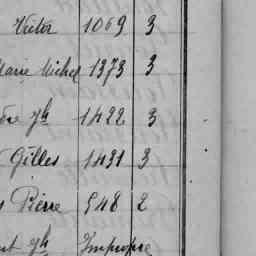 Victor 1069 3
Marie Michel 1373 3
Jh 1422 3
Gilles 1431 3
Pierre 548 2
Jh Impropre